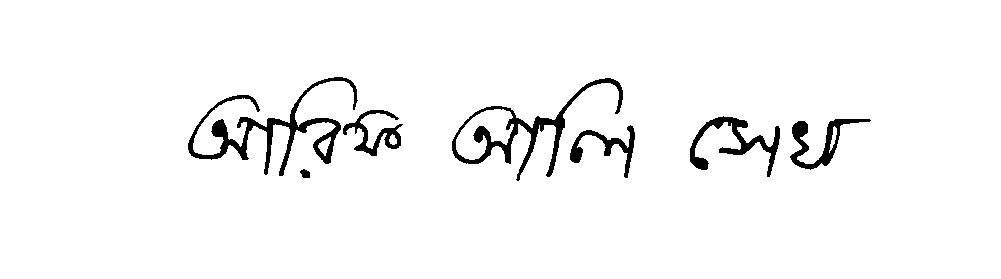 আরিফ আলি সেখ